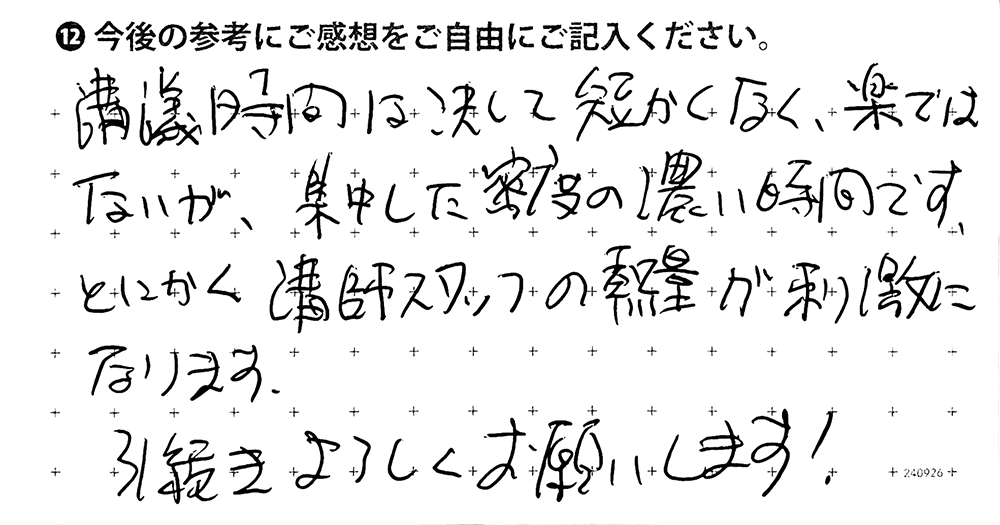 ⓬ 今後の参考にご感想をご自由にご記入ください。
講義時間は決して短かくなく、楽では
ないが、集中した密度の濃い時間です。
とにかく講師スタッフの熱量が刺激に
なります。
引続きよろしくお願いします!
240926